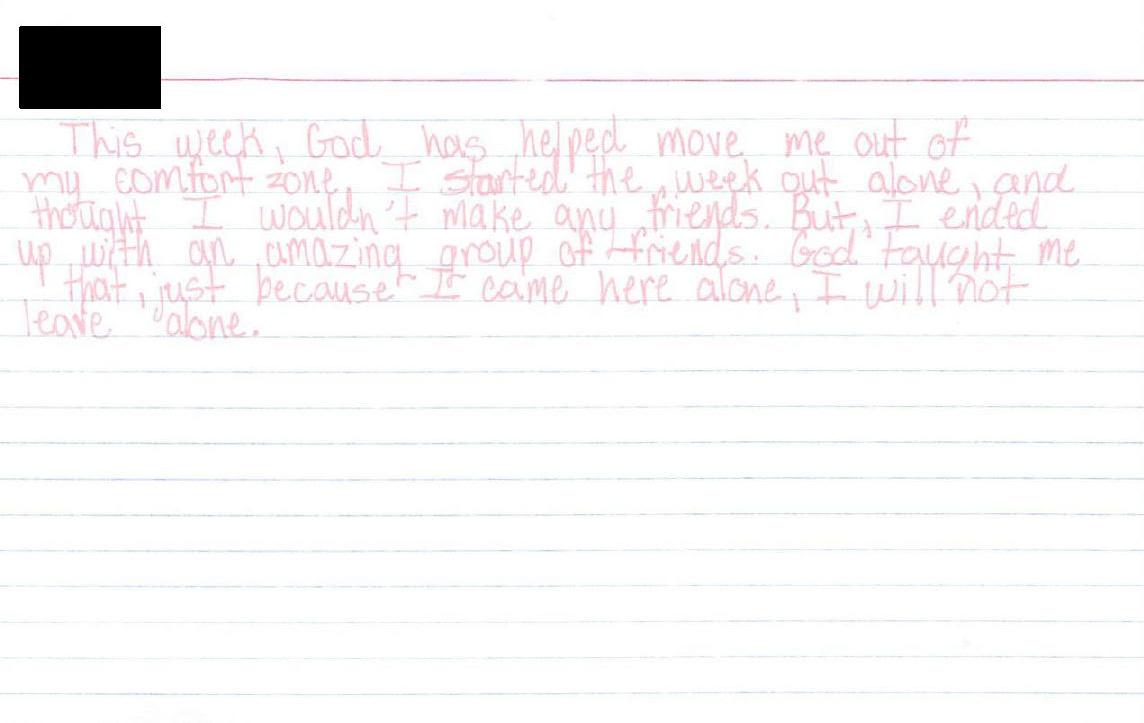 This week, God has helped move me out of
my comfort zone. I started the week out alone, and
thought I wouldn't make any friends. But, I ended
up with an amazing group of friends. God taught me
that, just because I came here alone, I will not
leave alone.